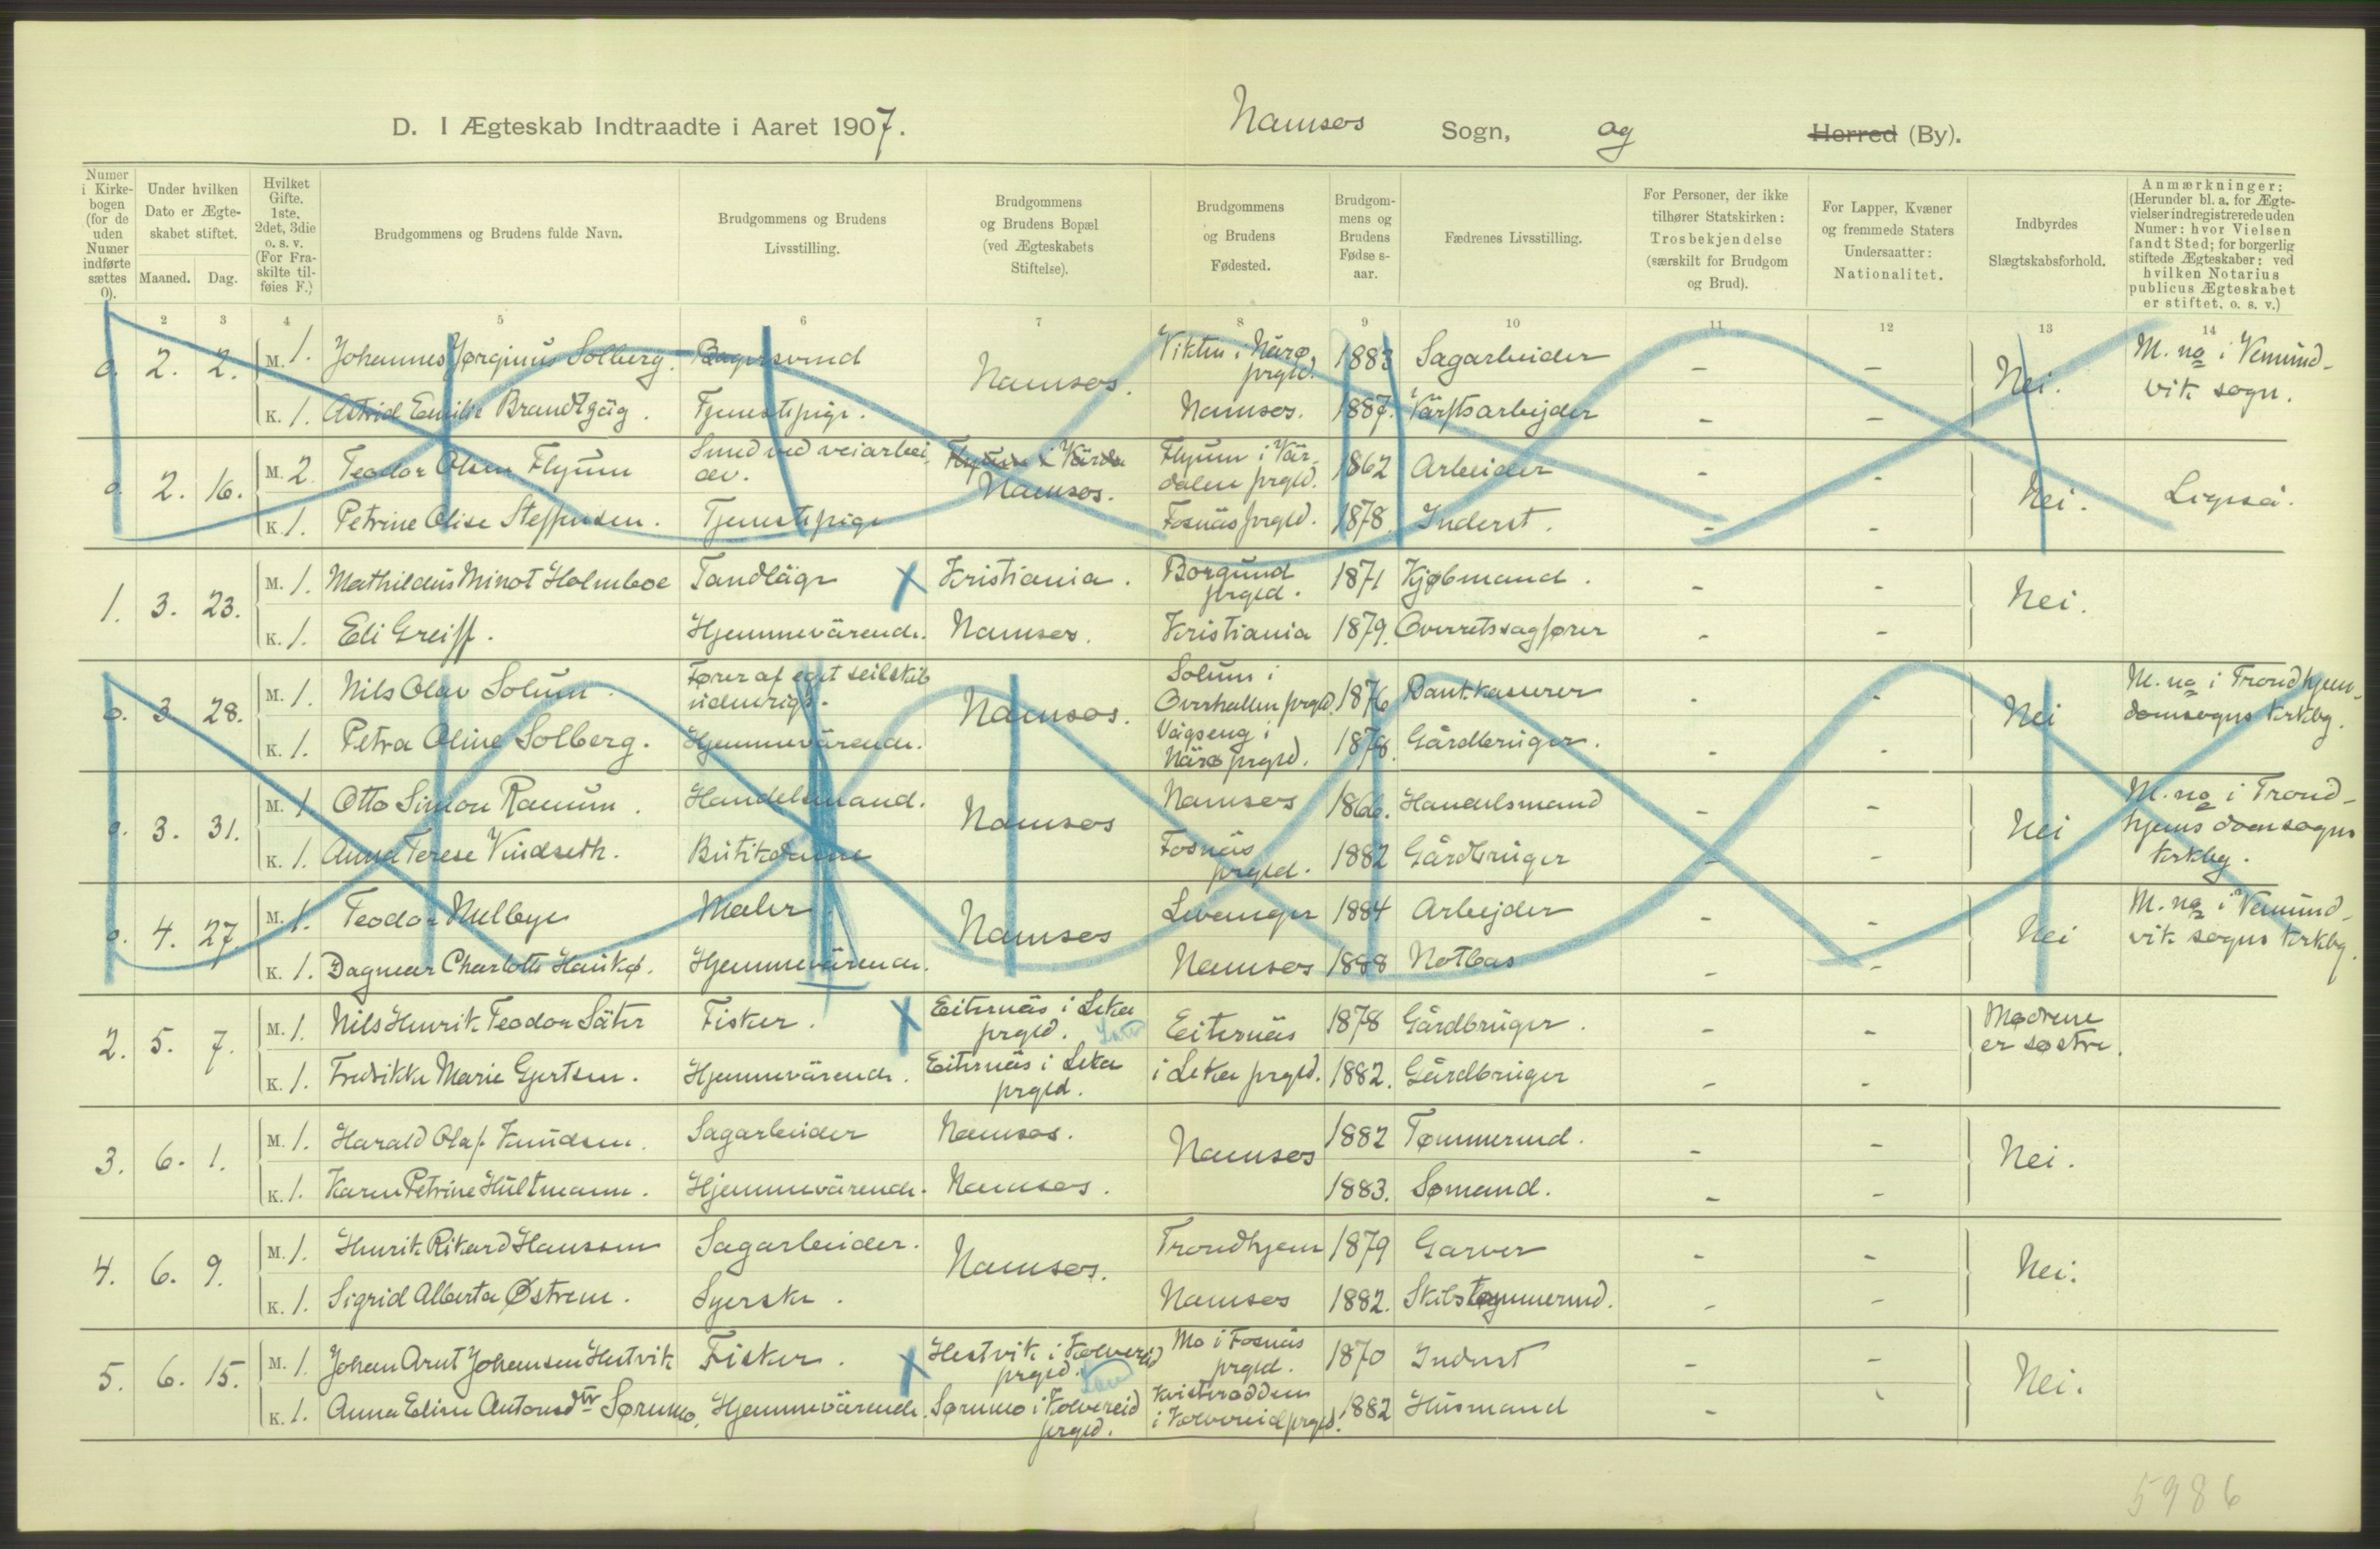 D. I Ægteskab Indtraadte i Aaret 1907. Namsos Sogn, og Herred (By).
Numer i Kirke-bogen (for de uden Numer indførte sættes 0).
Under hvilken Dato er Ægte-skabet stiftet.
Maaned. Dag.
Hvilket Gifte. 1ste, 2det, 3die o. s. v. (For Fra-skilte til-føies F.)
Brudgommens og Brudens fulde Navn.
Brudgommens og Brudens Livsstilling.
Brudgommens og Brudens Bopæl (ved Ægteskabets Stiftelse).
Brudgommens og Brudens Fødested.
Brudgom-mens og Brudens Fødse s-aar.
Fædrenes Livsstilling.
For Personer, der ikke tilhører Statskirken: Trosbekjendelse (særskilt for Brudgom og Brud).
For Lapper, Kvæner og fremmede Staters Undersaatter: Nationalitet.
Indbyrdes Slægtskabsforhold.
Anmærkninger: (Herunder bl. a. for Ægte-vielser indregistrerede uden Numer: hvor Vielsen fandt Sted; for borgerlig stiftede Ægteskaber: ved hvilken Notarius publicus Ægteskabet er stiftet. o. s. v.)
2 3 4 5 6 7 8 9 10 11 12 13 14
0. 2. 2. M. 1. Johannes Jørginus Solberg. Bagersvend Namsos. Vikten i Närø prgld. 1883 Sagarbeider - - Nei. M. no i Vemund-vik sogn.
K. 1. Astrid Emilie Brandtzäg. Tjenestepige. Namsos. 1887. Värftsarbejder - -
0. 2. 16. M. 2 Teodor Olsen Flyum Smed ved veiarbei-der. Namsos. Flyum i Vär-dalen prgld. 1862 Arbeider - - Nei.
K. 1. Petrine Olise Steffensen. Tjenestepige Fosnäs prgld. 1878. Inderst. - -
1. 3. 23. M. 1. Mathildus Minot Holmboe Tandläge X Kristiania. Borgund prgld. 1871 Kjøbmand. - - Nei.
K. 1. Eli Greiff. Hjemmevärende. Namsos. Kristiania 1879. Overretssagfører - -
0. 3. 28. M. 1. Nils Olav Solum. Fører af eget seilskib udenrigs. Namsos. Solum i Overhallen prgld. 1876 Bankkaserer - - Nei M. no i Trondhjem-domsogns kirkbg.
K. 1. Petra Oline Solberg. Hjemmevärende. Vågseng i Närø prgld. 1878. Gårdbruger. - -
0. 3. 31. M. 1 Otto Simon Ranum. Handelsmand. Namsos Namsos 1866. Handelsmand - - Nei M. no i Trond-hjems domsogns kirkbg.
K. 1. Anna Terese Vindseth. Butikdame Fosnäs prgld. 1882 Gårdbruger - -
0. 4. 27. M. 1. Teodor Melbye Maler. Namsos Levanger 1884 Arbejder - - Nei M. no i Vemund-vik sogns kirkbg.
K. 1. Dagmar Charlotte Haukø. Hjemmevärende. Namsos 1888 Notbas - -
2. 5. 7. M. 1. Nils Henrik Teodor Säter Fisker. X Eiternäs i Leka prgld. Eiternäs 1878 Gårdbruger. - - Mødrene er søstre.
K. 1. Fredrikke Marie Gjertsen. Hjemmevärende. Eiternäs i Leka prgld. i Leka prgld. 1882. Gårdbruger - -
3. 6. 1. M. 1. Harald Olaf Knudsen. Sagarbeider Namsos. Namsos 1882 Tømmermd. - - Nei.
K. 1. Karen Petrine Hultmann. Hjemmevärende. Namsos. 1883. Sømand. - -
4. 6. 9. M. 1. Henrik Rikard Hanssen Sagarbeider. Namsos. Trondhjem 1879 Garver - - Nei.
K. 1. Sigrid Alberta Østrem. Syerske. Namsos 1882. Skibstømmermd. - -
5. 6. 15. M. 1. Johan Arnt Johansen Hestvik Fisker. X Hestvik i Kolvereid prgld. Mo i Fosnäs prgld. 1870 Inderst - - Nei.
K. 1. Anna Eline Antonsdtr Sørumo. Hjemmevärende. Sørumo i Kolvereid prgld. Kvisterodden i Kolvereid prgld. 1882 Husmand -
5986